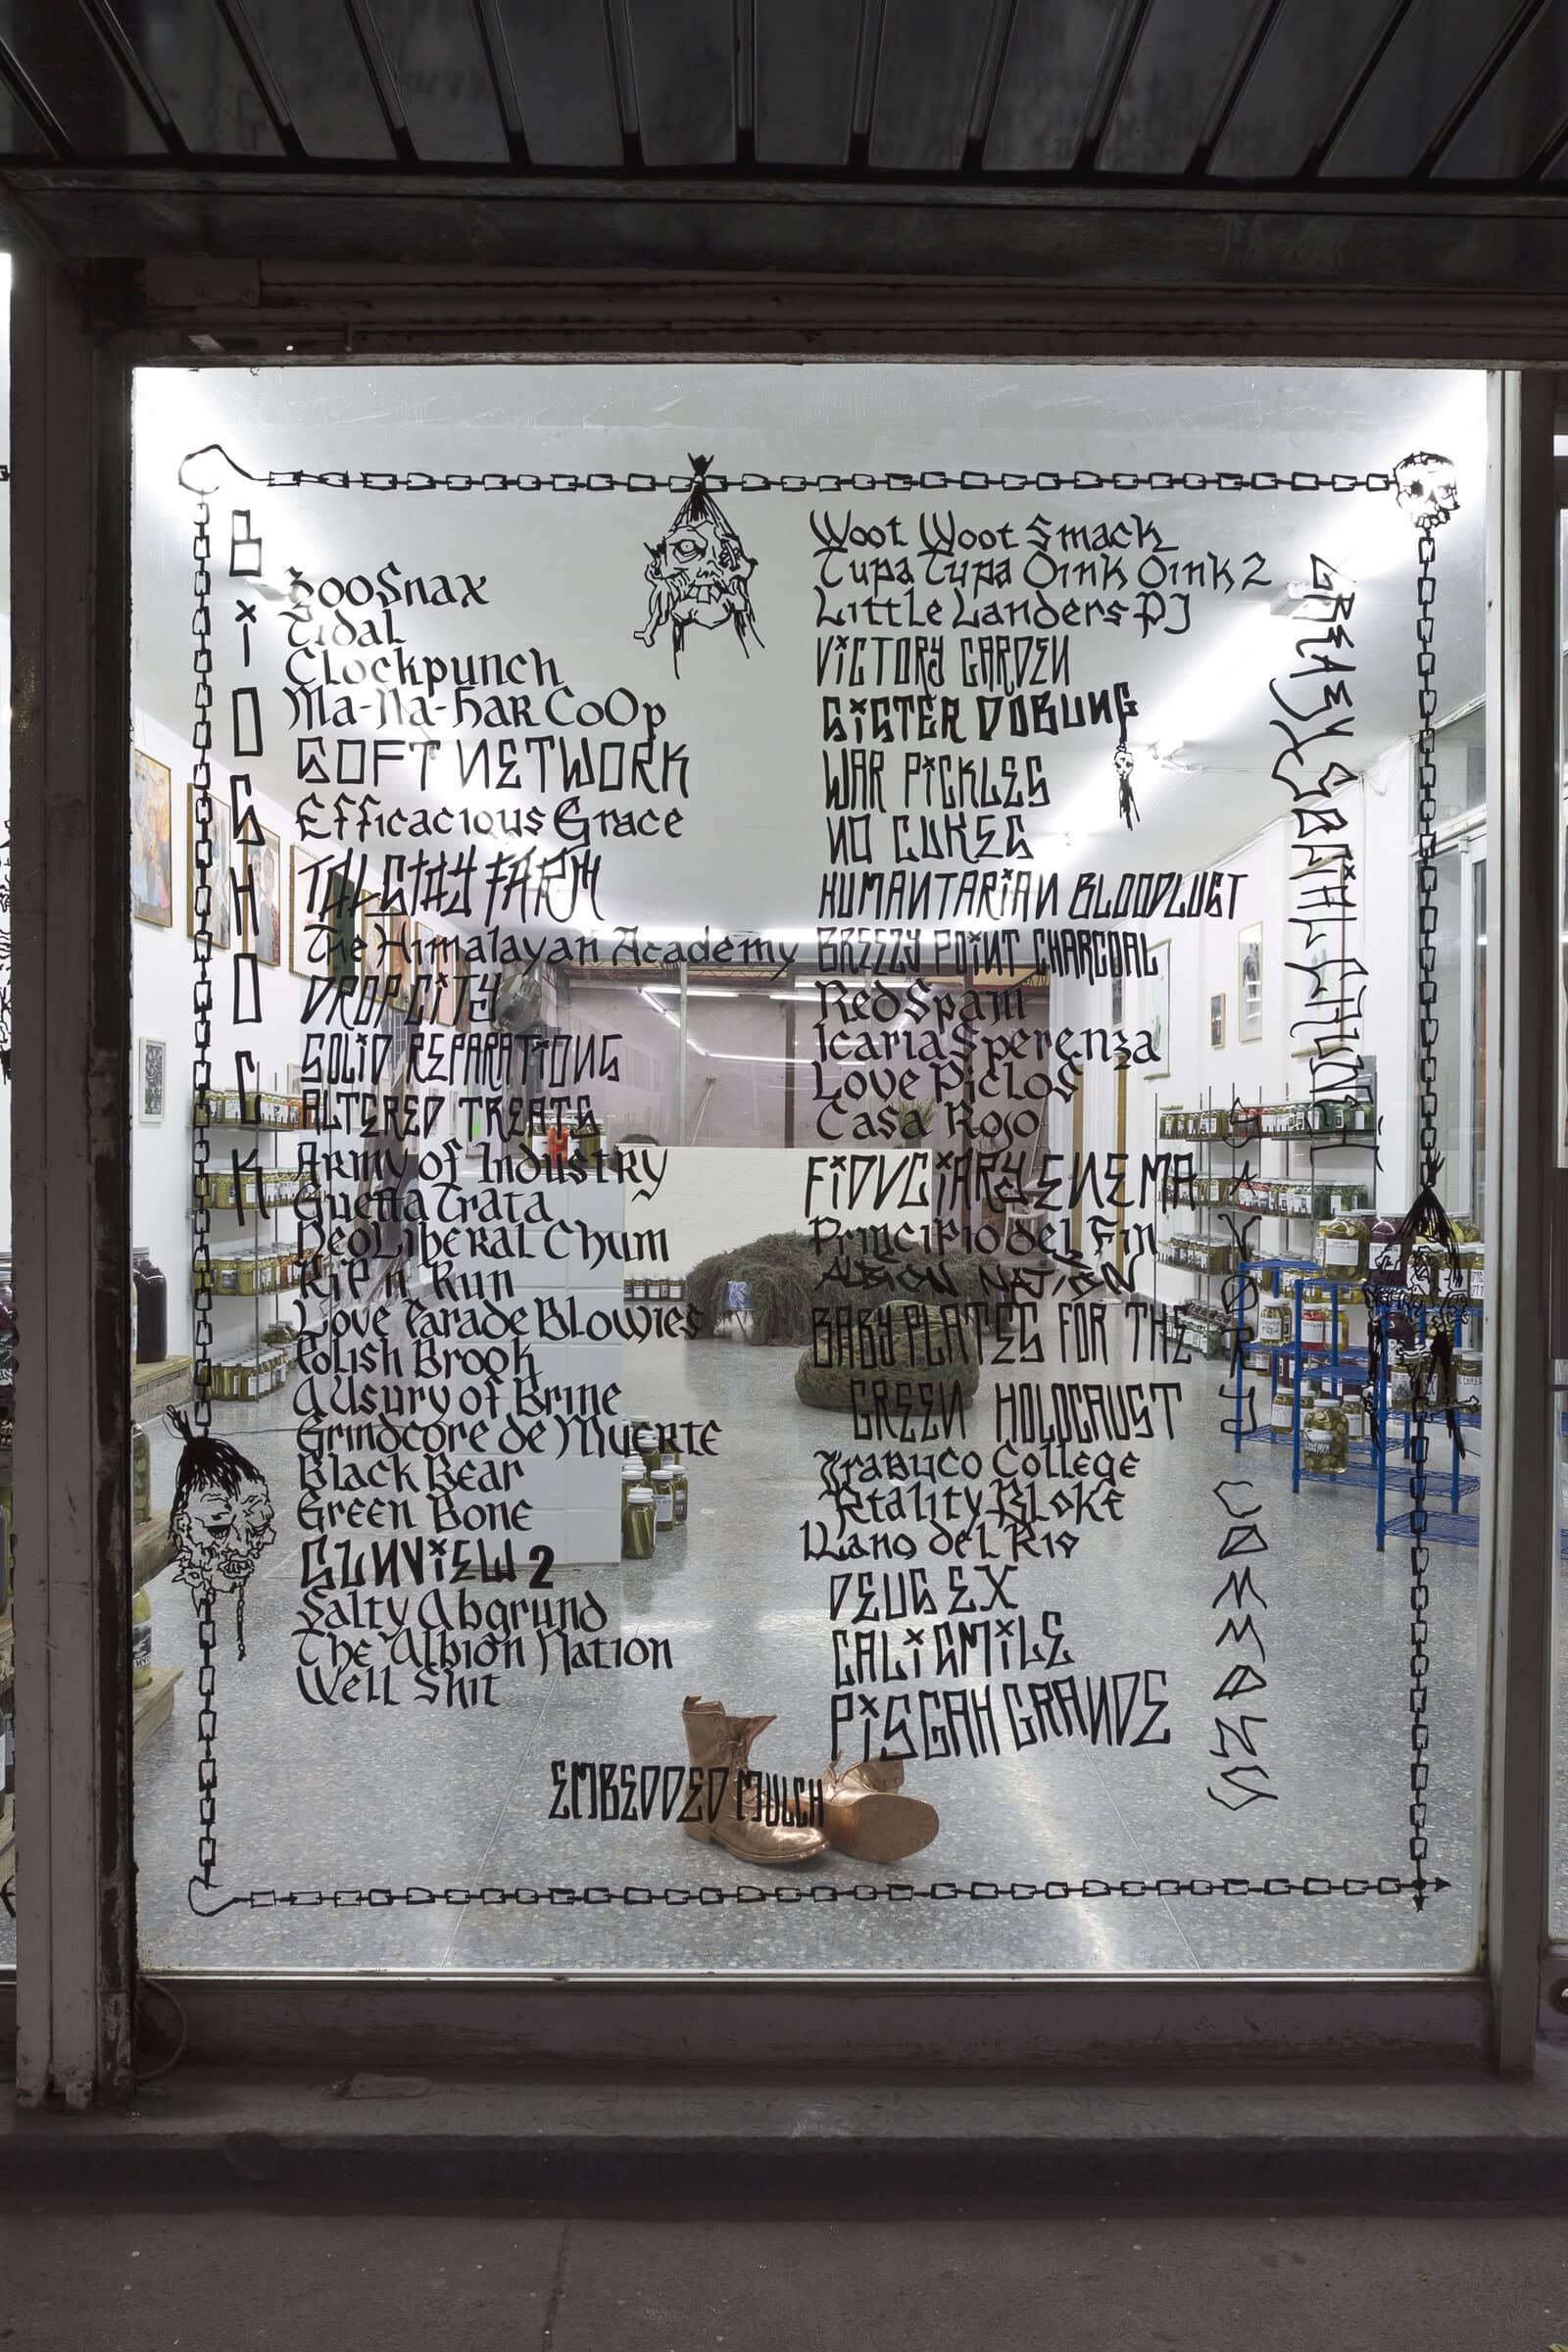 BIOSHOCK
ZooSnax
Tidal
Clockpunch
Ma-Na-Har CoOp
SOFT NETWORK
Efficacious Grace
TALSTAY FARM
The Himalayan Academy
DROP CITY
SOLID REPARATIONS
ALTERED TREATS
Army of Industry
Guetta Trata
NeoLiberal Chum
RiP n Run
Love Parade Blowies
Polish Brook
A Usury of Brine
Grindcore de Muerte
Black Bear
Green Bone
GUNVIEW 2
Salty Abgrund
The Albion Nation
Well Shit
Woot Woot Smack
Tupa Tupa Oink Oink 2
Little Landers PJ
VICTORY GARDEN
SISTER DOBUNG
WAR PICKLES
NO CUKES
HUMANTARIAN BLOODLUST
BREEZY POINT CHARCOAL
Red Spam
Icaria Sperenza
Love Piclos
Casa Rojo
FIDUCIARY ENEMA
Principio del Fin
ALBION NATION
BABY PLATES FOR THE
GREEN HOLOCAUST
Trabuco College
Rtality Bloke
Llano del Rio
DEUS EX
CALISMILE
PISGAH GRANDE
EMBEDDED MULCH
SAVORY COMMONS